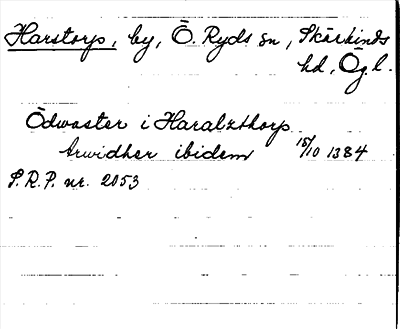 Harstorp, by, Ö. Ryds sn, Skärkinds
hd, Ög.l.
Ödwaster i Haralzthorp
Arwidher ibidem 15/10 1384
S.R.P. nr. 2053